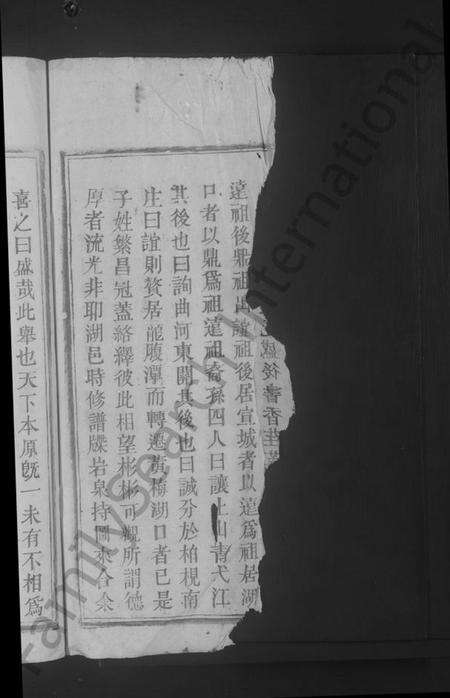 盛後書香
遠祖後鼎祖由誼祖後居宜城者以遠爲祖居湖
口者以鼎爲祖遠祖裔孫四人曰讓上山青弋江
其後也曰詢曲河東關其後也曰誠分於柏梘南
庄曰誼則贅居龍腹潭而轉遷黃梅湖口者已是
子姓繁昌冠蓋絡繹彼此相望彬彬可觀所謂德
厚者流光非耶湖邑時修譜牒岩泉持圖來合余
喜之曰盛哉此舉也天下本原旣一未有不相爲
FamilySearch International